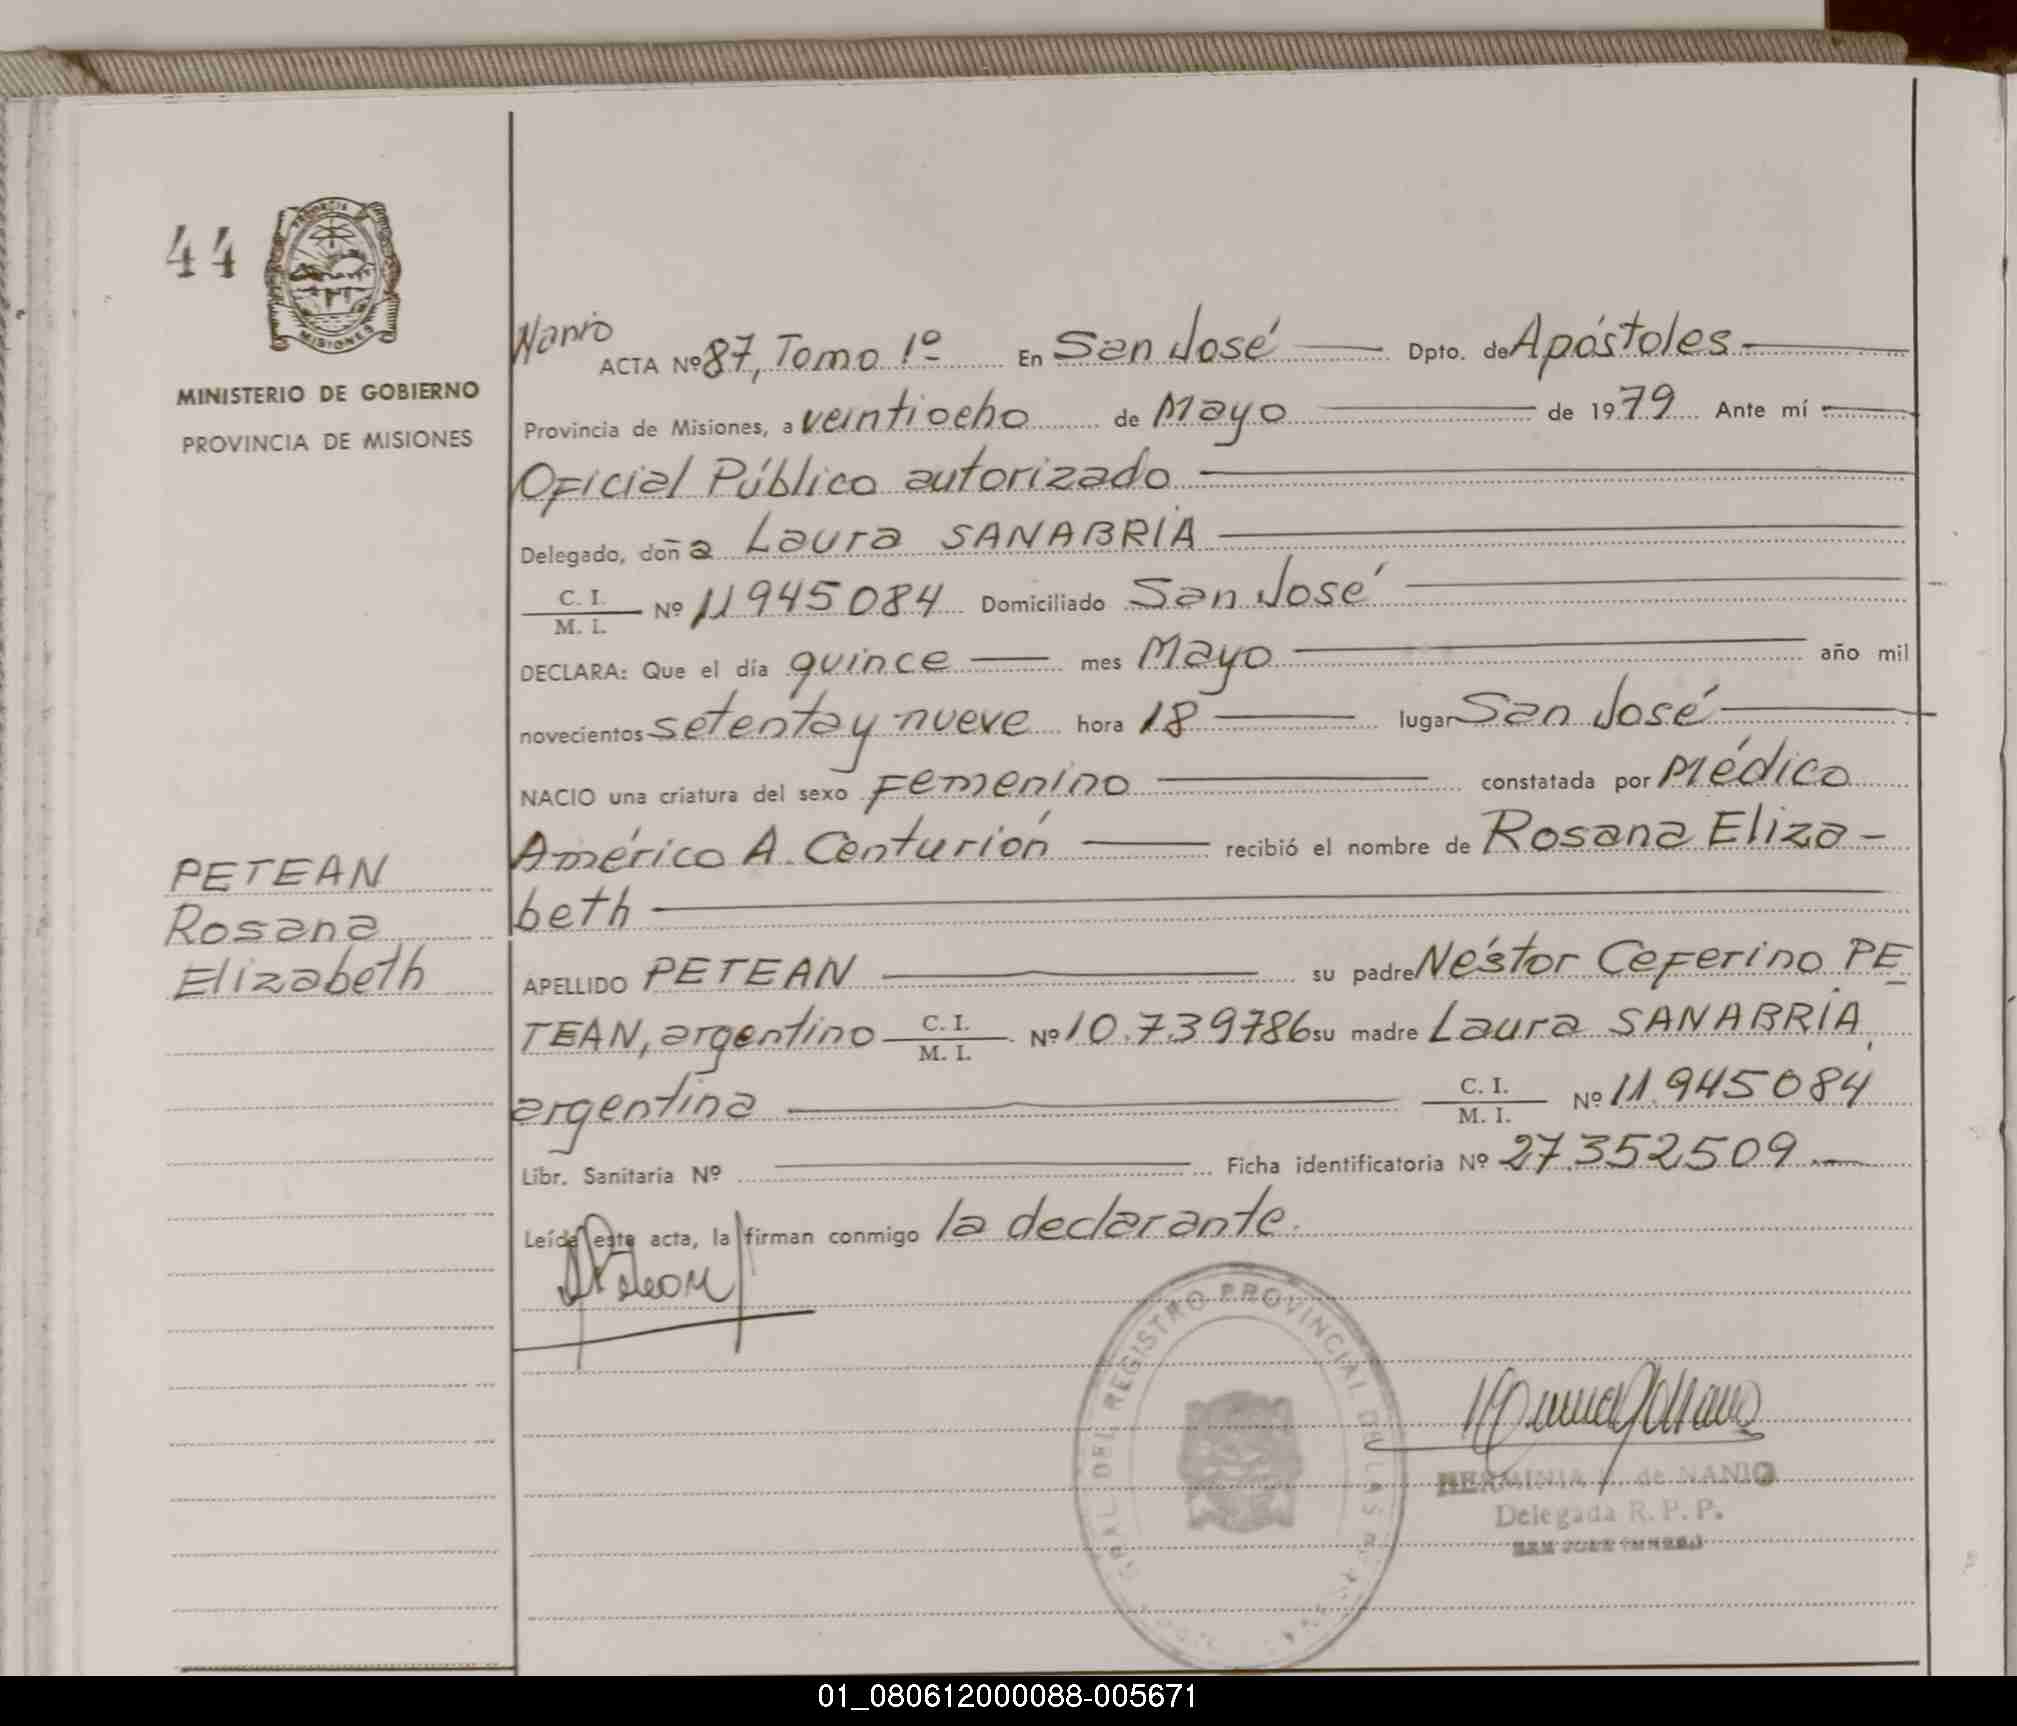 44
PROVINCIA
MISIONES
MINISTERIO DE GOBIERNO
PROVINCIA DE MISIONES
PETEAN
Rosana
Elizabeth
Nanio
ACTA Nº 87, Tomo 1º En San José Dpto. de Apóstoles
Provincia de Misiones, a veintiocho de Mayo de 1979 Ante mí
Oficial Público autorizado
Delegado, doña Laura SANABRIA
C. I.
M. I. Nº 11945084 Domiciliado San José
DECLARA: Que el día quince mes Mayo año mil
novecientos setenta y nueve hora 18 lugar San José
NACIO una criatura del sexo Femenino constatada por Médico
Américo A. Centurión recibió el nombre de Rosana Eliza-
beth
APELLIDO PETEAN su padre Néstor Ceferino PE
TEAN, argentino C. I. M. I. Nº 10.739786 su madre Laura SANABRIA,
argentina C. I. M. I. Nº 11.945084
Libr. Sanitaria Nº Ficha identificatoria Nº 27.352509
Leída este acta, la firman conmigo la declarante.
GRAL DEL REGISTRO PROVINCIAL DE LAS
HERMINIA de NANIO
Delegada R. P. P.
SAN JOSE
01_080612000088-005671